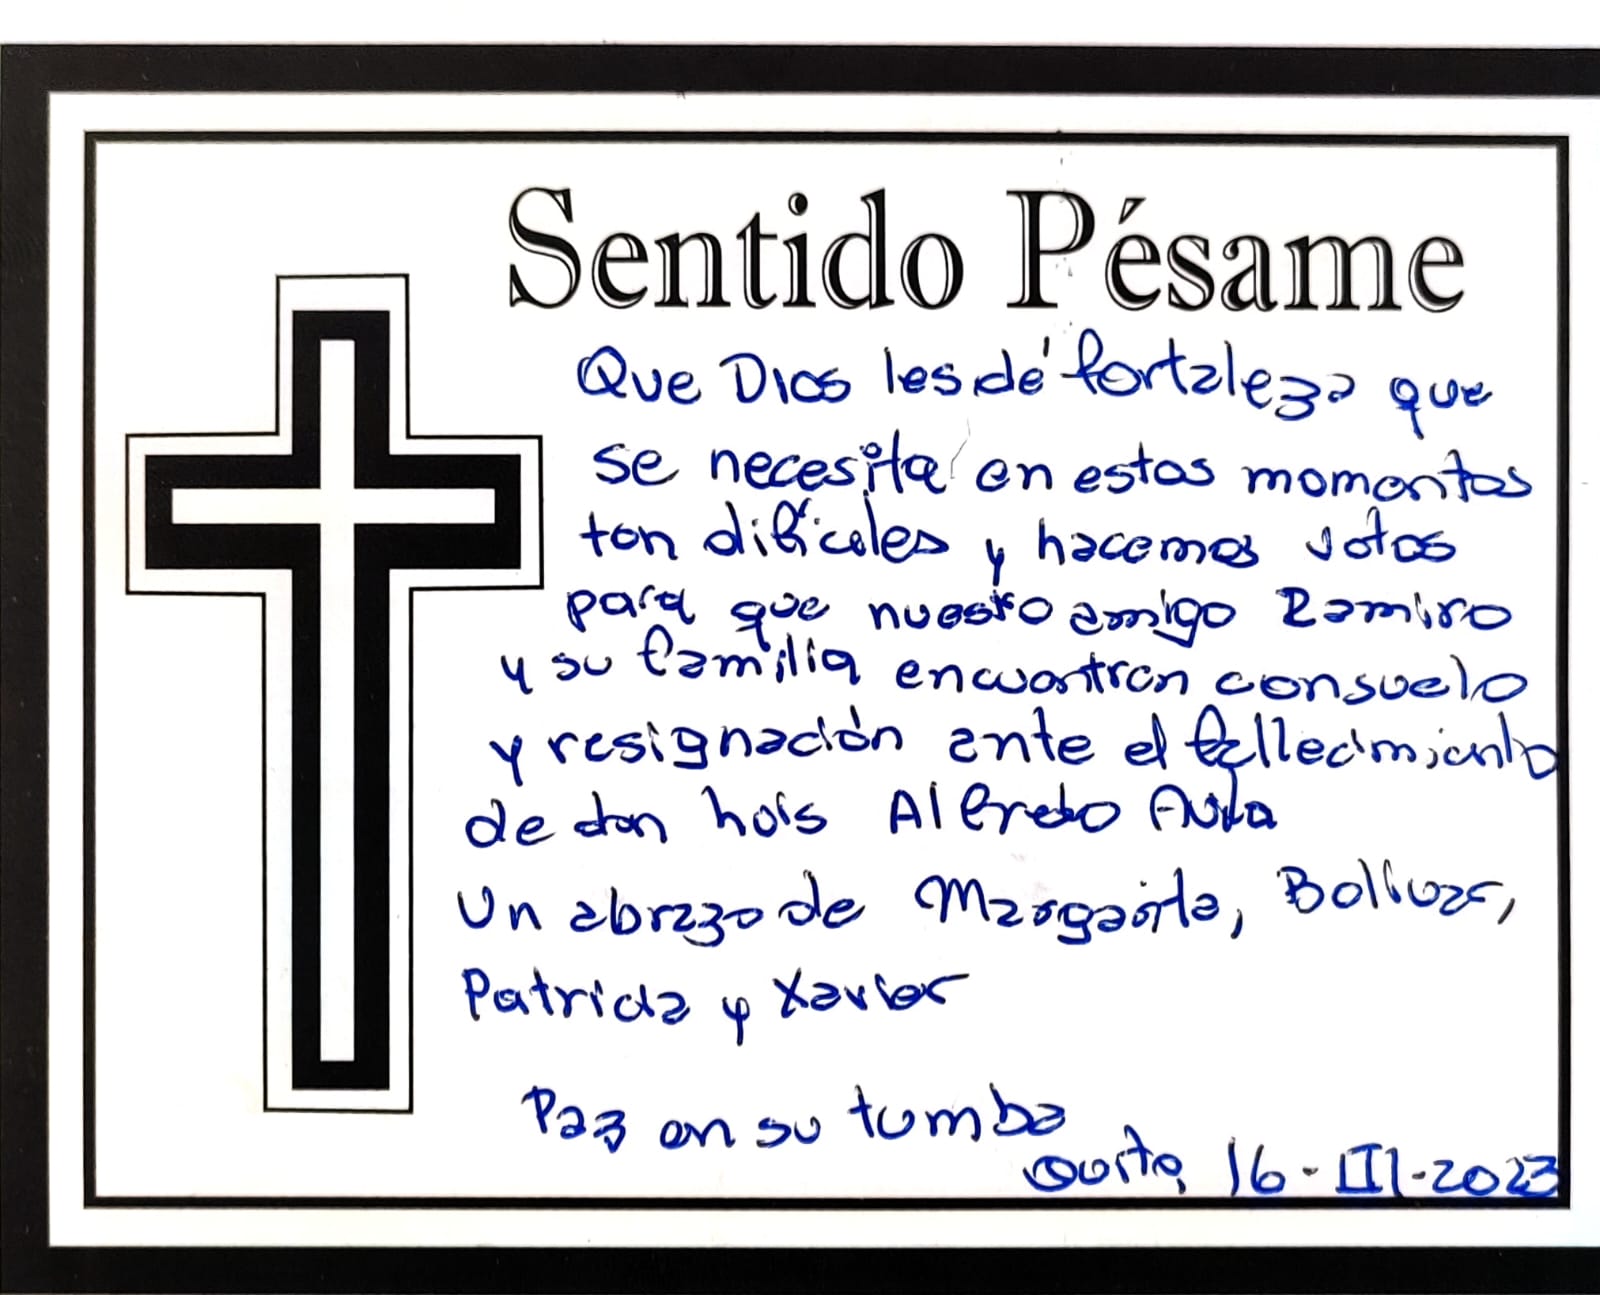 Sentido Pésame
Que Dios les dé fortaleza que
se necesita en estos momentos
tan difíciles y hacemos votos
para que nuestro amigo Ramiro
y su familia encuentren consuelo
y resignación ante el fallecimiento
de don Luis Alfredo Avila
Un abrazo de Margarita, Bolívar,
Patricia y Xavier
Paz en su tumba
Quito, 16-III-2023